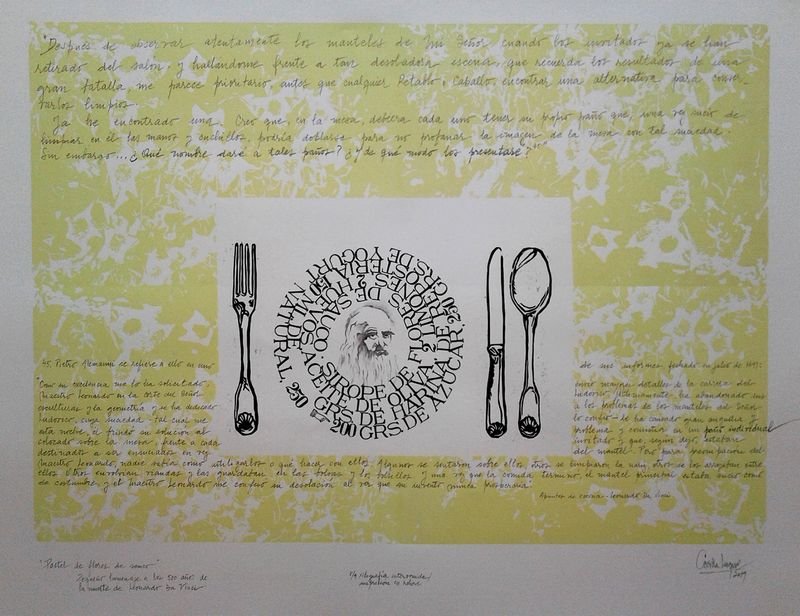 "Después de observar atentamente los manteles de mi Señor cuando los invitados ya se han
retirado del salón, y hallándome frente a tan desoladora escena, que recuerda los resultados de una
gran batalla, me parece prioritario, antes que cualquier Retablo o Caballo, encontrar una alternativa para conser
varlos limpios.
Ya he encontrado una. Creo que, en la mesa, debería cada uno tener su propio paño que, una vez sucio de
limpiar en él las manos y cuchillos, podría doblarse para no profanar la imagen de la mesa con tal suciedad.
Sin embargo... ¿Qué nombre daré a tales paños? ¿Y de qué modo los presentaré?"
SIROPE DE FLORES DE SAUCO.
ACEITE DE OLIVA
2 HUEVOS
200 GRS. DE HARINA DE REPOSTERIA
250 GRS. DE AZUCAR.
250 ML. DE YOGURT NATURAL
45. Pietro Alemanni se refiere a ello en uno
de sus informes, fechado en julio de 1491:
"Como su excelencia me lo ha solicitado
Maestro Leonardo en la corte del Señor
esculturas y la geometría y se ha dedicado
Ludovico, cuya suciedad - tal cual me
esta noche a su solución al
colocado sobre la mesa, frente a cada
destinados a ser ensuciados en vez
detalles de la carrera del
Ludovico. Últimamente ha abandonado sus
a los problemas de los manteles del Señor
problema y consistía en un paño individual
invitado y que, según dijo, estaban
del mantel. Pero para preocupación del
Maestro Leonardo, nadie sabía cómo utilizarlos o qué hacer con ellos. Algunos se sentaron sobre ellos, otros se limpiaron la nariz, otros se los arrojaban entre
ellos. Otros envolvían viandas y las guardaban en las bolsas y los bolsillos. Y una vez que la comida terminó, el mantel principal estaba sucio como
de costumbre, y el Maestro Leonardo me confesó su desolación al ver que su invento nunca prosperaría"
Apuntes de cocina - Leonardo Da Vinci
"Pastel de flores de sauco"
Pequeño homenaje a los 500 años de
la muerte de Leonardo Da Vinci
Xilografía intervenida/
impresión en relieve
2019